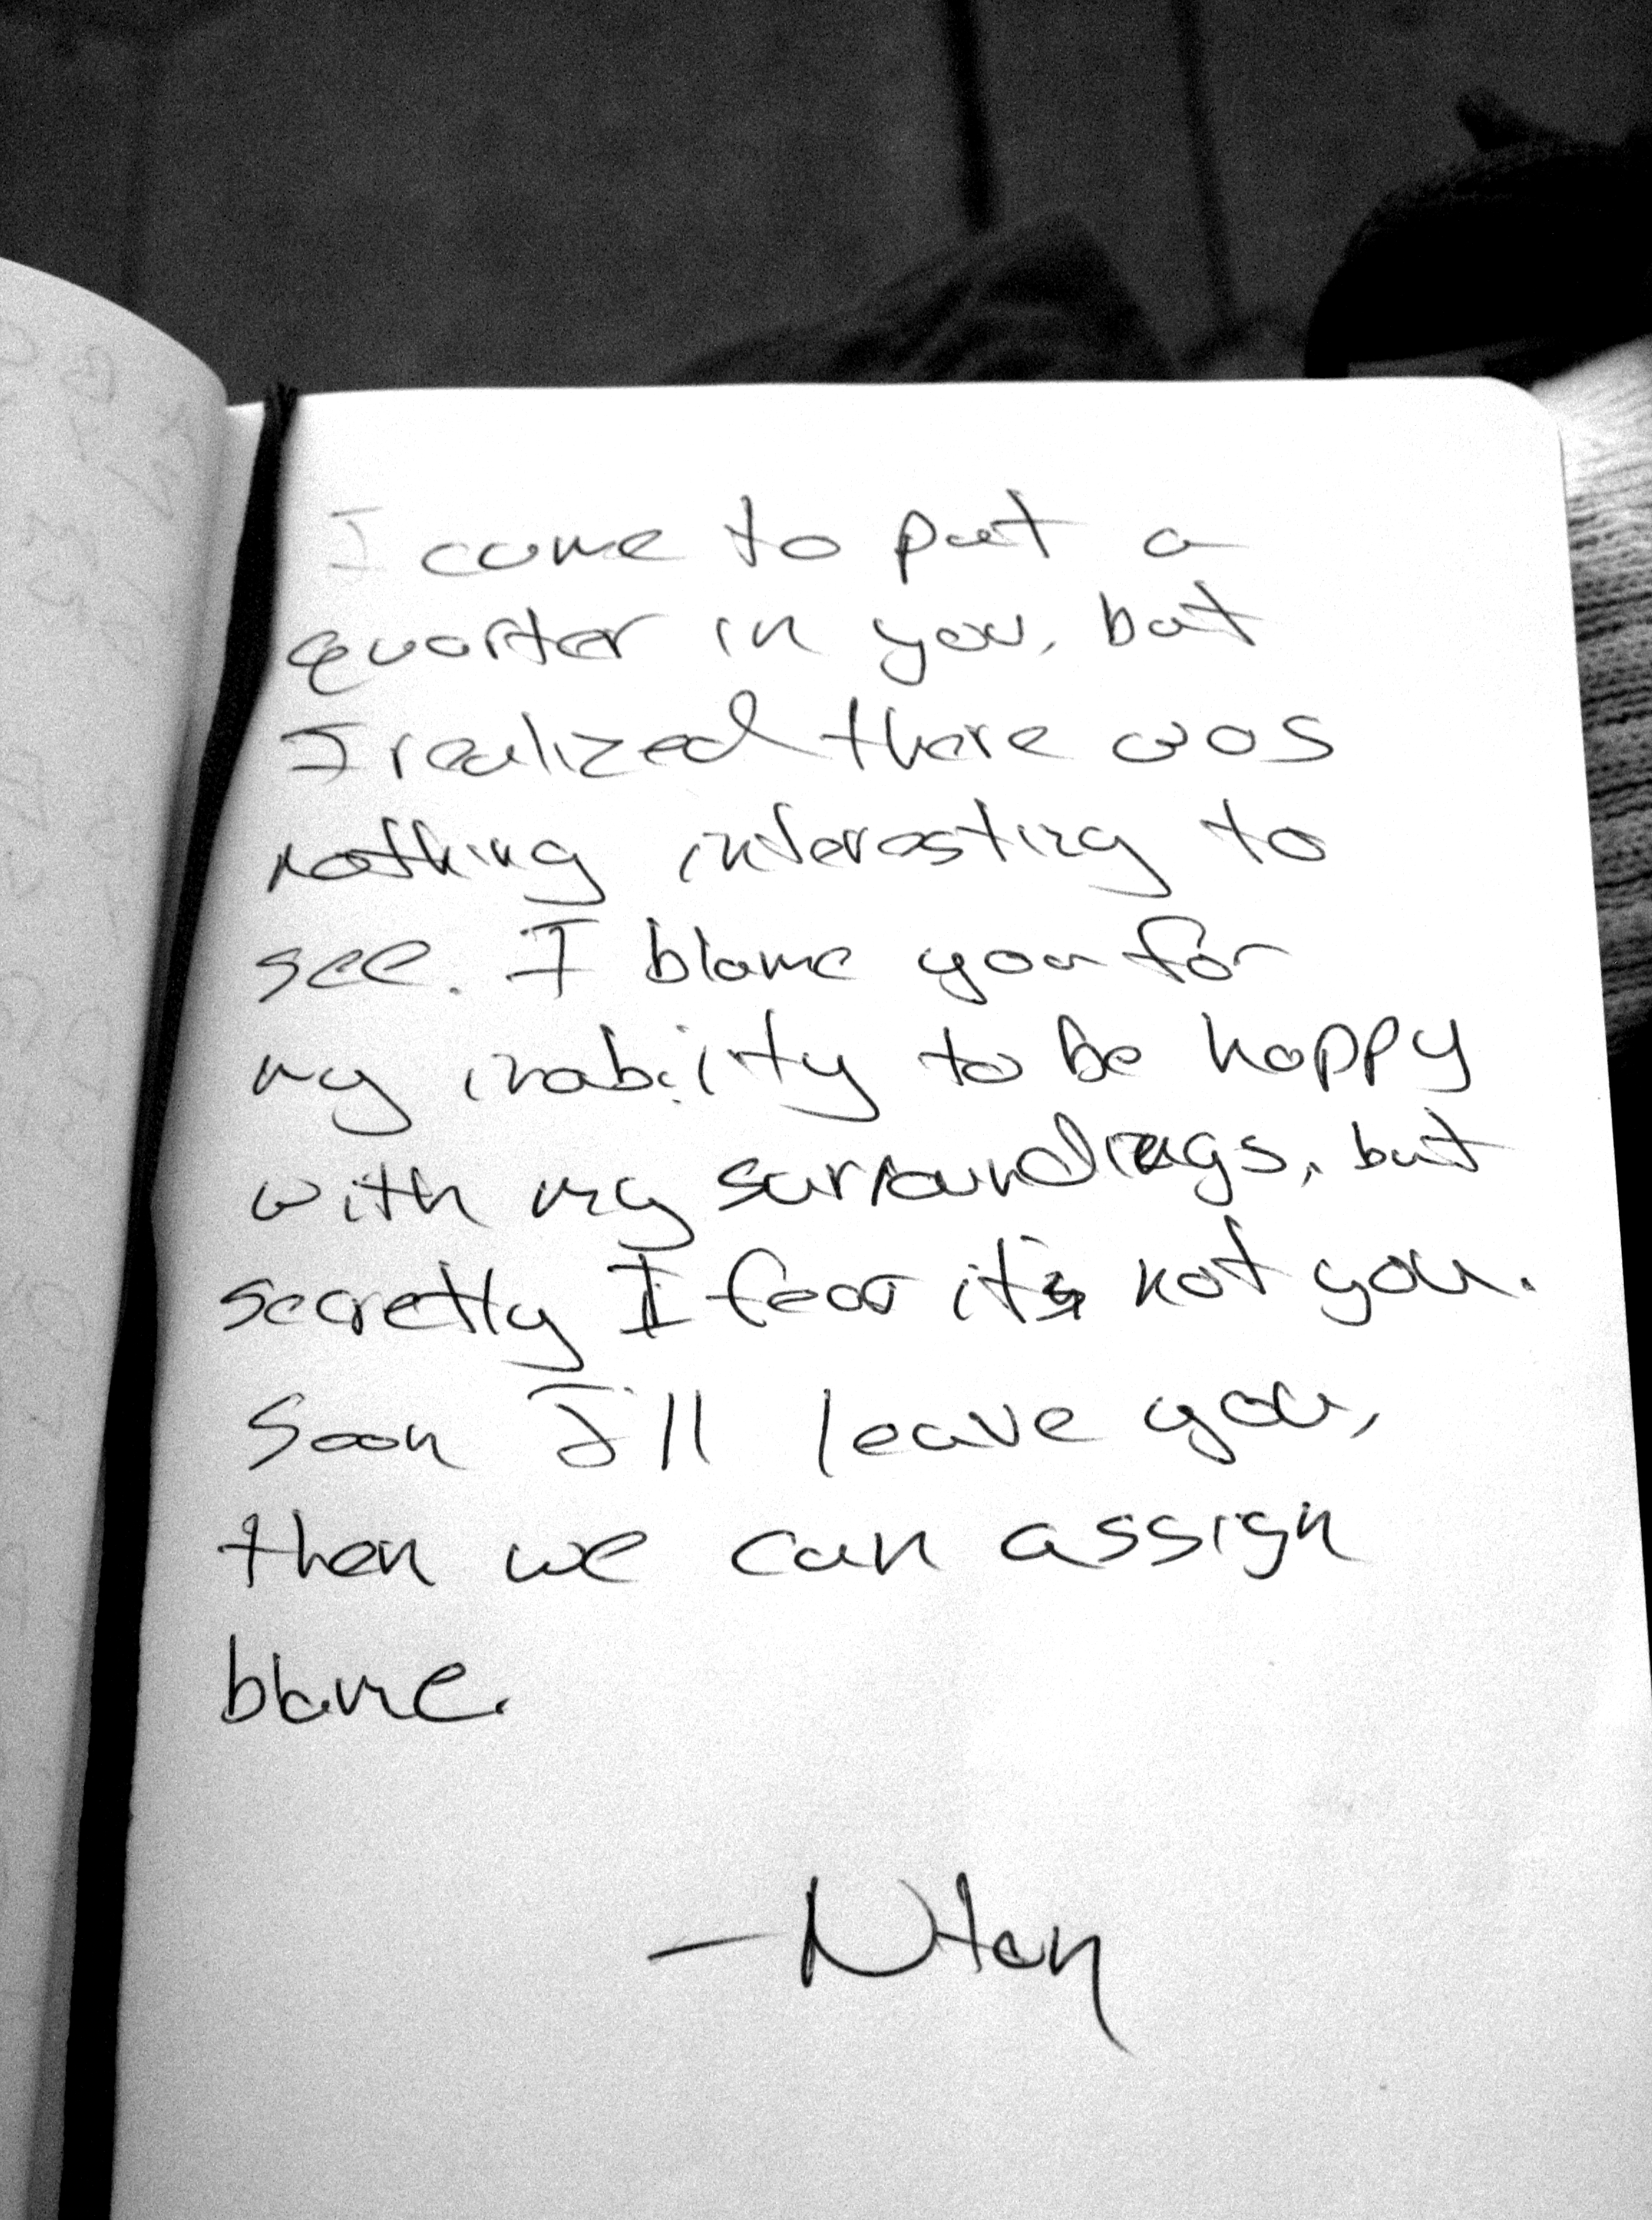 I come to put a
quarter in you, but
I realized there was
nothing interesting to
see. I blame you for
my inability to be happy
with my surroundings, but
secretly I fear it's not you.
Soon I'll leave you,
then we can assign
blame.